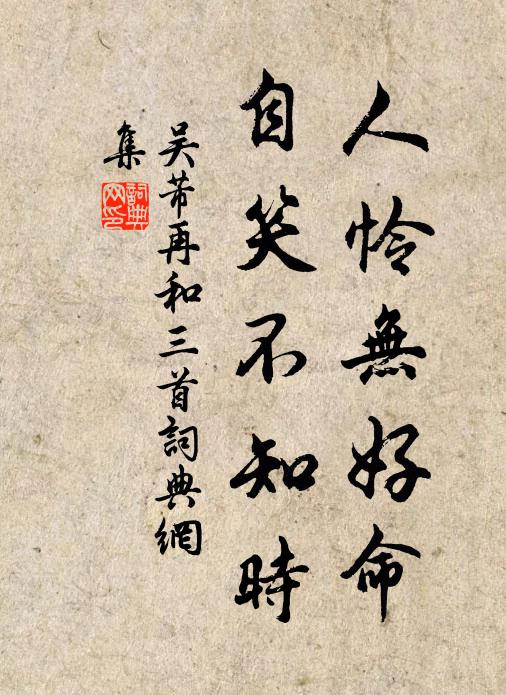 人怜無好命
自笑不知時
吴芾再和三首詞典網
集
詞典
网印